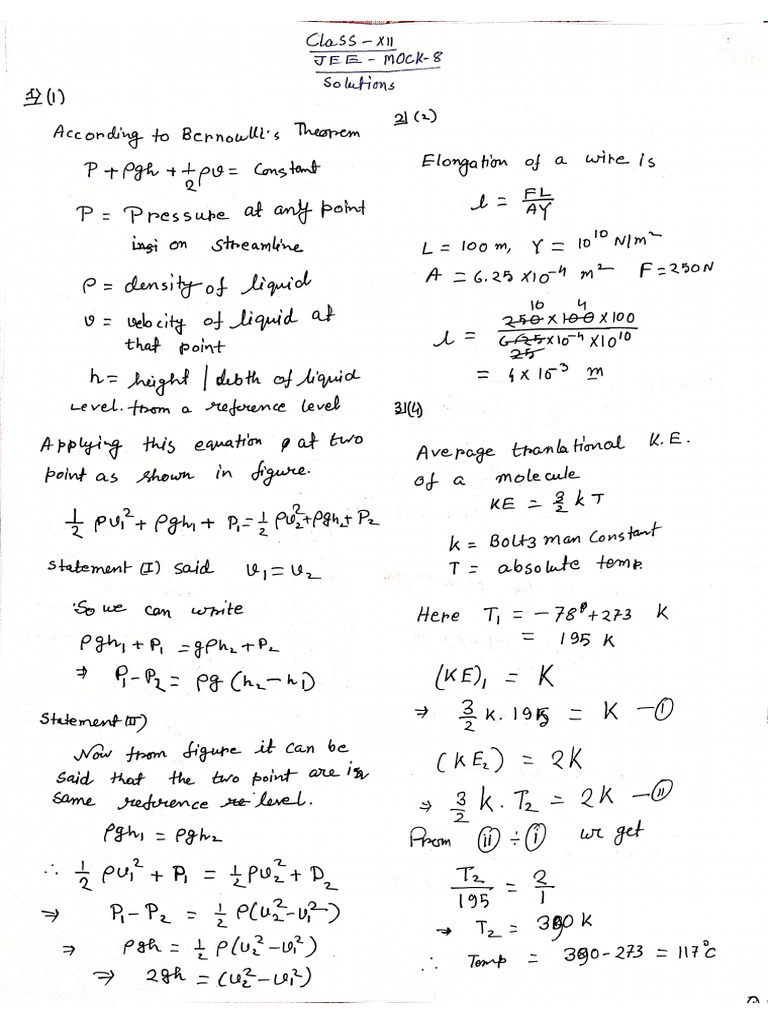 Class - XII
JEE - MOCK-8
Solutions
1) (1)
According to Bernoulli's Theorem
P + ρgh + 1/2 ρv = Constant
P = Pressure at any point
on streamline
ρ = density of liquid
v = velocity of liquid at
that point
h = height / debth of liquid
level from a reference level
Applying this equation at two
point as shown in figure.
1/2 ρv₁² + ρgh₁ + P₁ = 1/2 ρv₂² + ρgh₂ + P₂
Statement (I) said v₁ = v₂
So we can write
ρgh₁ + P₁ = gρh₂ + P₂
⇒ P₁ - P₂ = ρg (h₂ - h₁)
Statement (II)
Now from figure it can be
said that the two point are in
same reference level.
ρgh₁ = ρgh₂
∴ 1/2 ρv₁² + P₁ = 1/2 ρv₂² + P₂
⇒ P₁ - P₂ = 1/2 ρ(v₂² - v₁²)
⇒ ρgh = 1/2 ρ(v₂² - v₁²)
⇒ 2gh = (v₂² - v₁²)
2) (2)
Elongation of a wire is
l = FL/AY
L = 100 m, Y = 10¹⁰ N/m²
A = 6.25 × 10⁻⁴ m² F = 250 N
10 4
l = 250 × 100 × 100 / 6.25 × 10⁻⁴ × 10¹⁰
25
= 4 × 10⁻³ m
3) (4)
Average tranlational K.E.
of a molecule
KE = 3/2 k T
k = Boltzman Constant
T = absolute temp.
Here T₁ = -78° + 273 K
= 195 K
(KE)₁ = K
⇒ 3/2 k. 195 = K - (i)
(KE₂) = 2K
⇒ 3/2 k. T₂ = 2K - (ii)
From (ii) ÷ (i) we get
T₂/195 = 2/1
→ T₂ = 390 K
∴ Temp = 390 - 273 = 117°C